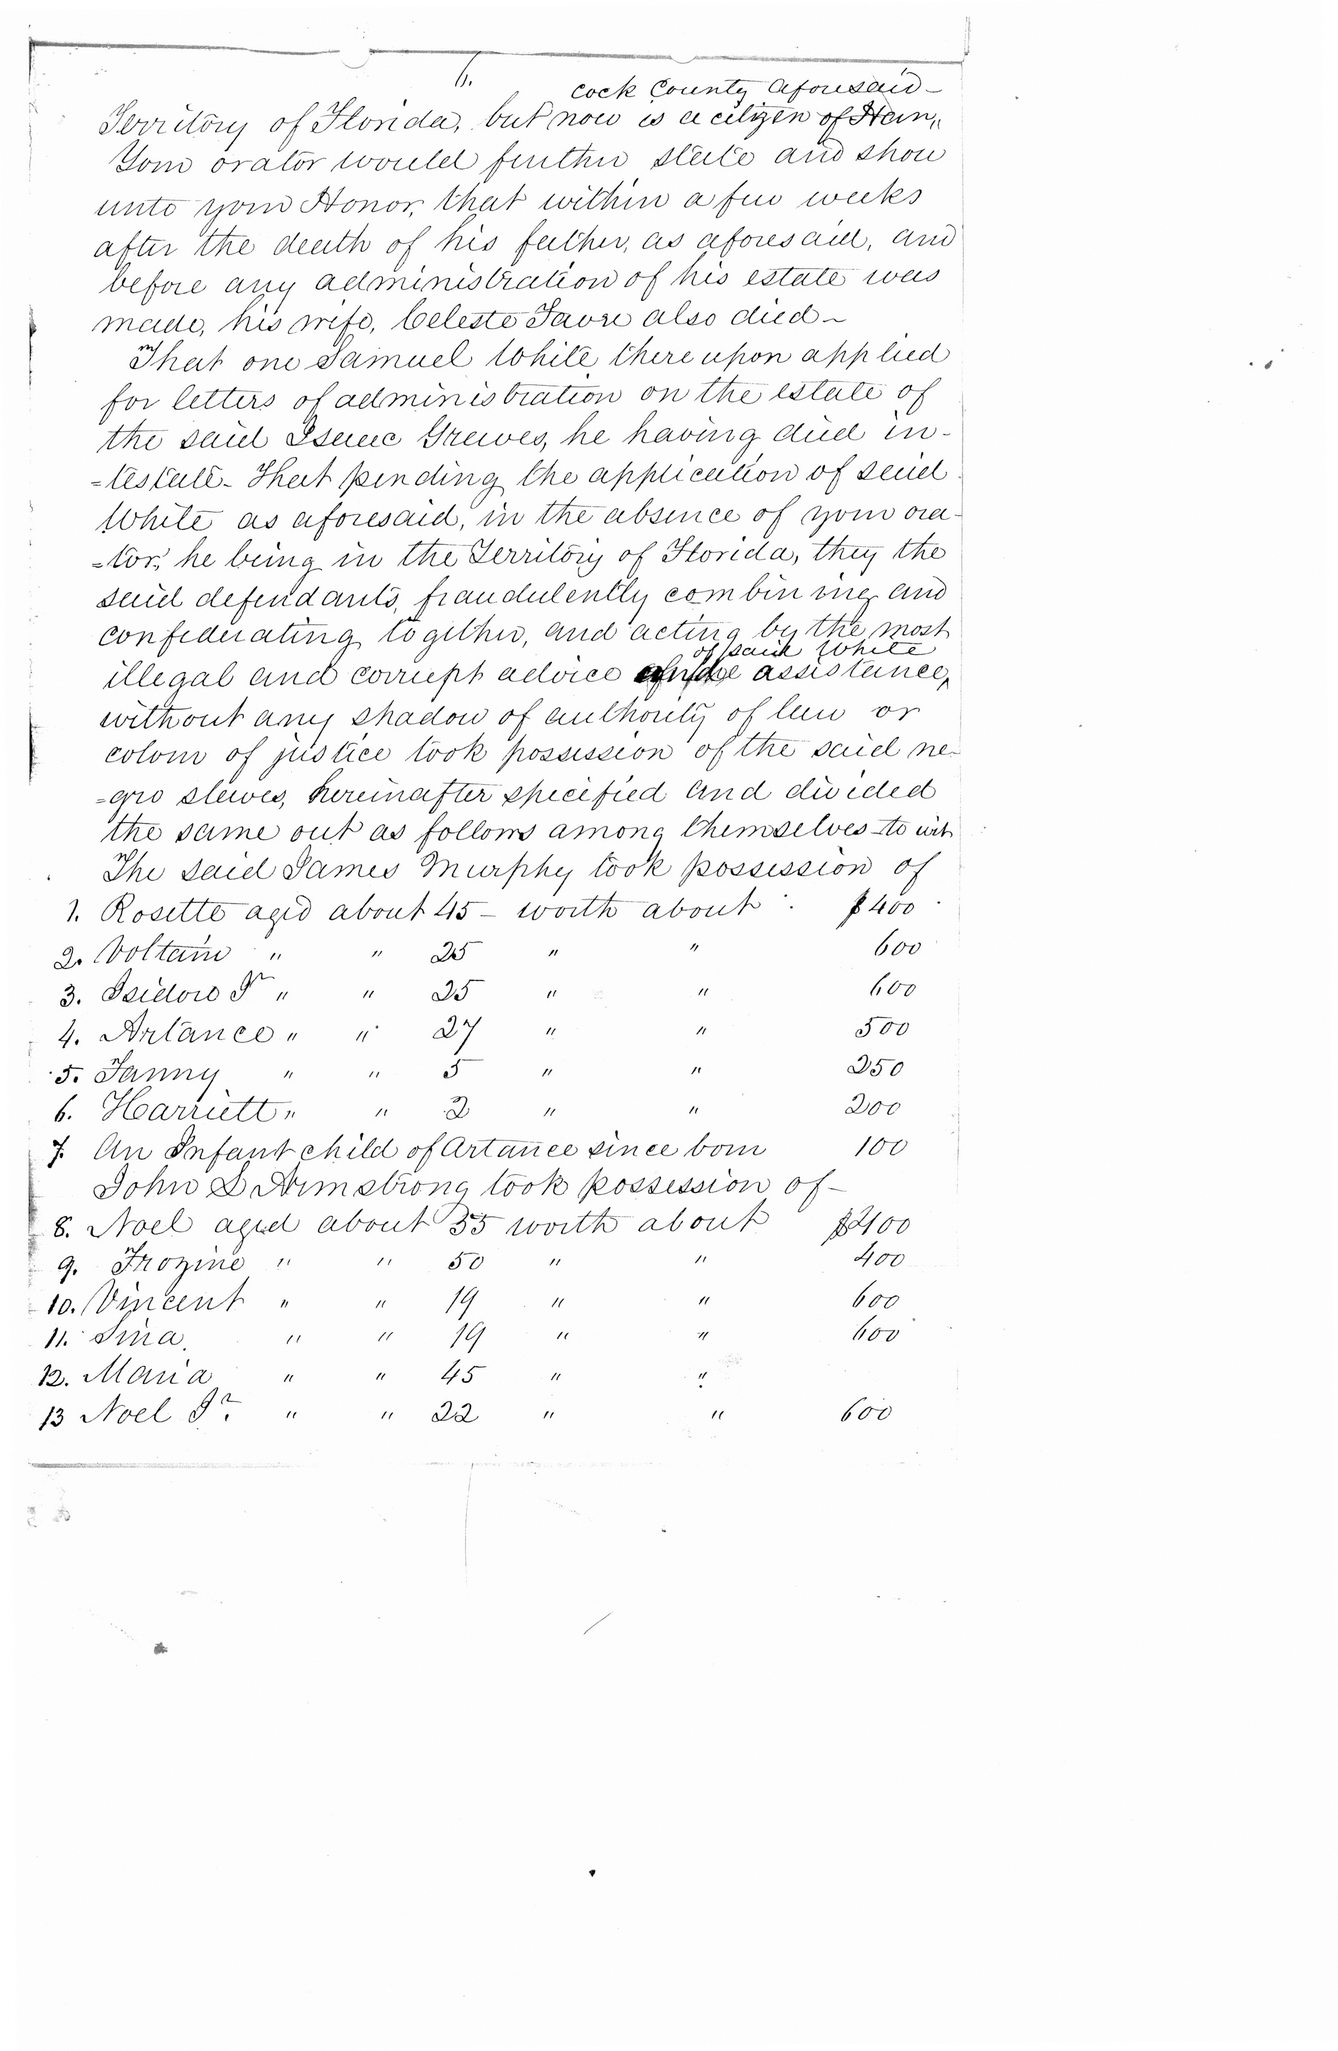 6.
cock County aforesaid-
Territory of Florida, but now is a citizen of Han„
Your orator would further state and show
unto your Honor, that within a few weeks
after the death of his father, as aforesaid, and
before any administration of his estate was
made, his wife, Celeste Favre also died-
That one Samuel White there upon applied
for letters of administration on the estate of
the said Isaac Graves, he having died in-
=testate- That pending the application of said
White as aforesaid, in the absence of your ora-
=tor, he being in the Territory of Florida, they the
said defendants, fraudulently combining and
confederating together, and acting by the most
of said White
illegal and corrupt advice and assistance,
without any shadow of authority of law or
colour of justice took possession of the said ne-
=gro slaves, hereinafter specified and divided
the same out as follows among themselves to wit
The said James Murphy took possession of
1. Rosette aged about 45 - worth about $400
2. Voltair " " 25 " " 600
3. Isidore Jr " " 25 " " 600
4. Artance " " 27 " " 500
5. Fanny " " 5 " " 250
6. Harriett " " 2 " " 200
7. An Infant child of Artance since born 100
John S Armstrong took possession of-
8. Noel aged about 55 worth about $400
9. Frozine " " 50 " " 400
10. Vincent " " 19 " " 600
11. Sina. " " 19 " " 600
12. Maria " " 45 " "
13 Noel Jr. " " 22 " " 600